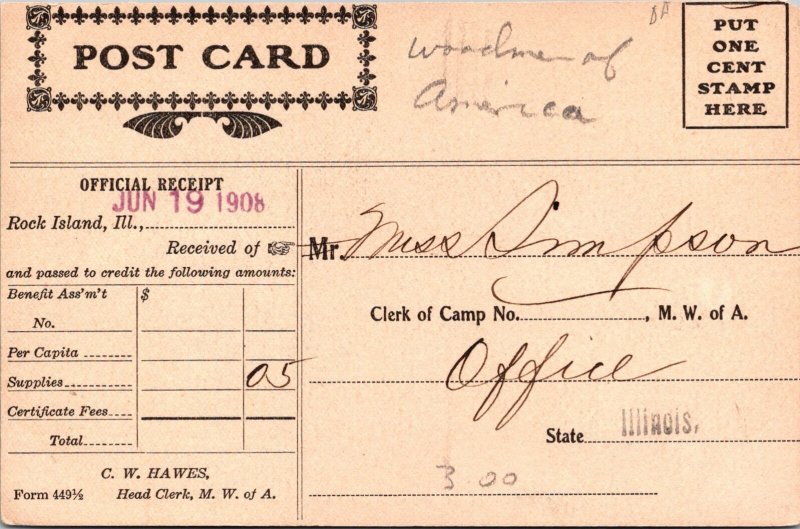 POST CARD
Woodmen of
America
PUT
ONE
CENT
STAMP
HERE
OFFICIAL RECEIPT
JUN 19 1908
Rock Island, Ill.,
Received of
and passed to credit the following amounts:
Benefit Ass'm't $
No.
Per Capita
Supplies 05
Certificate Fees
Total
C. W. HAWES,
Form 449½ Head Clerk, M. W. of A.
Mr. Miss Simpson
Clerk of Camp No. , M. W. of A.
Office
State Illinois.
3.00